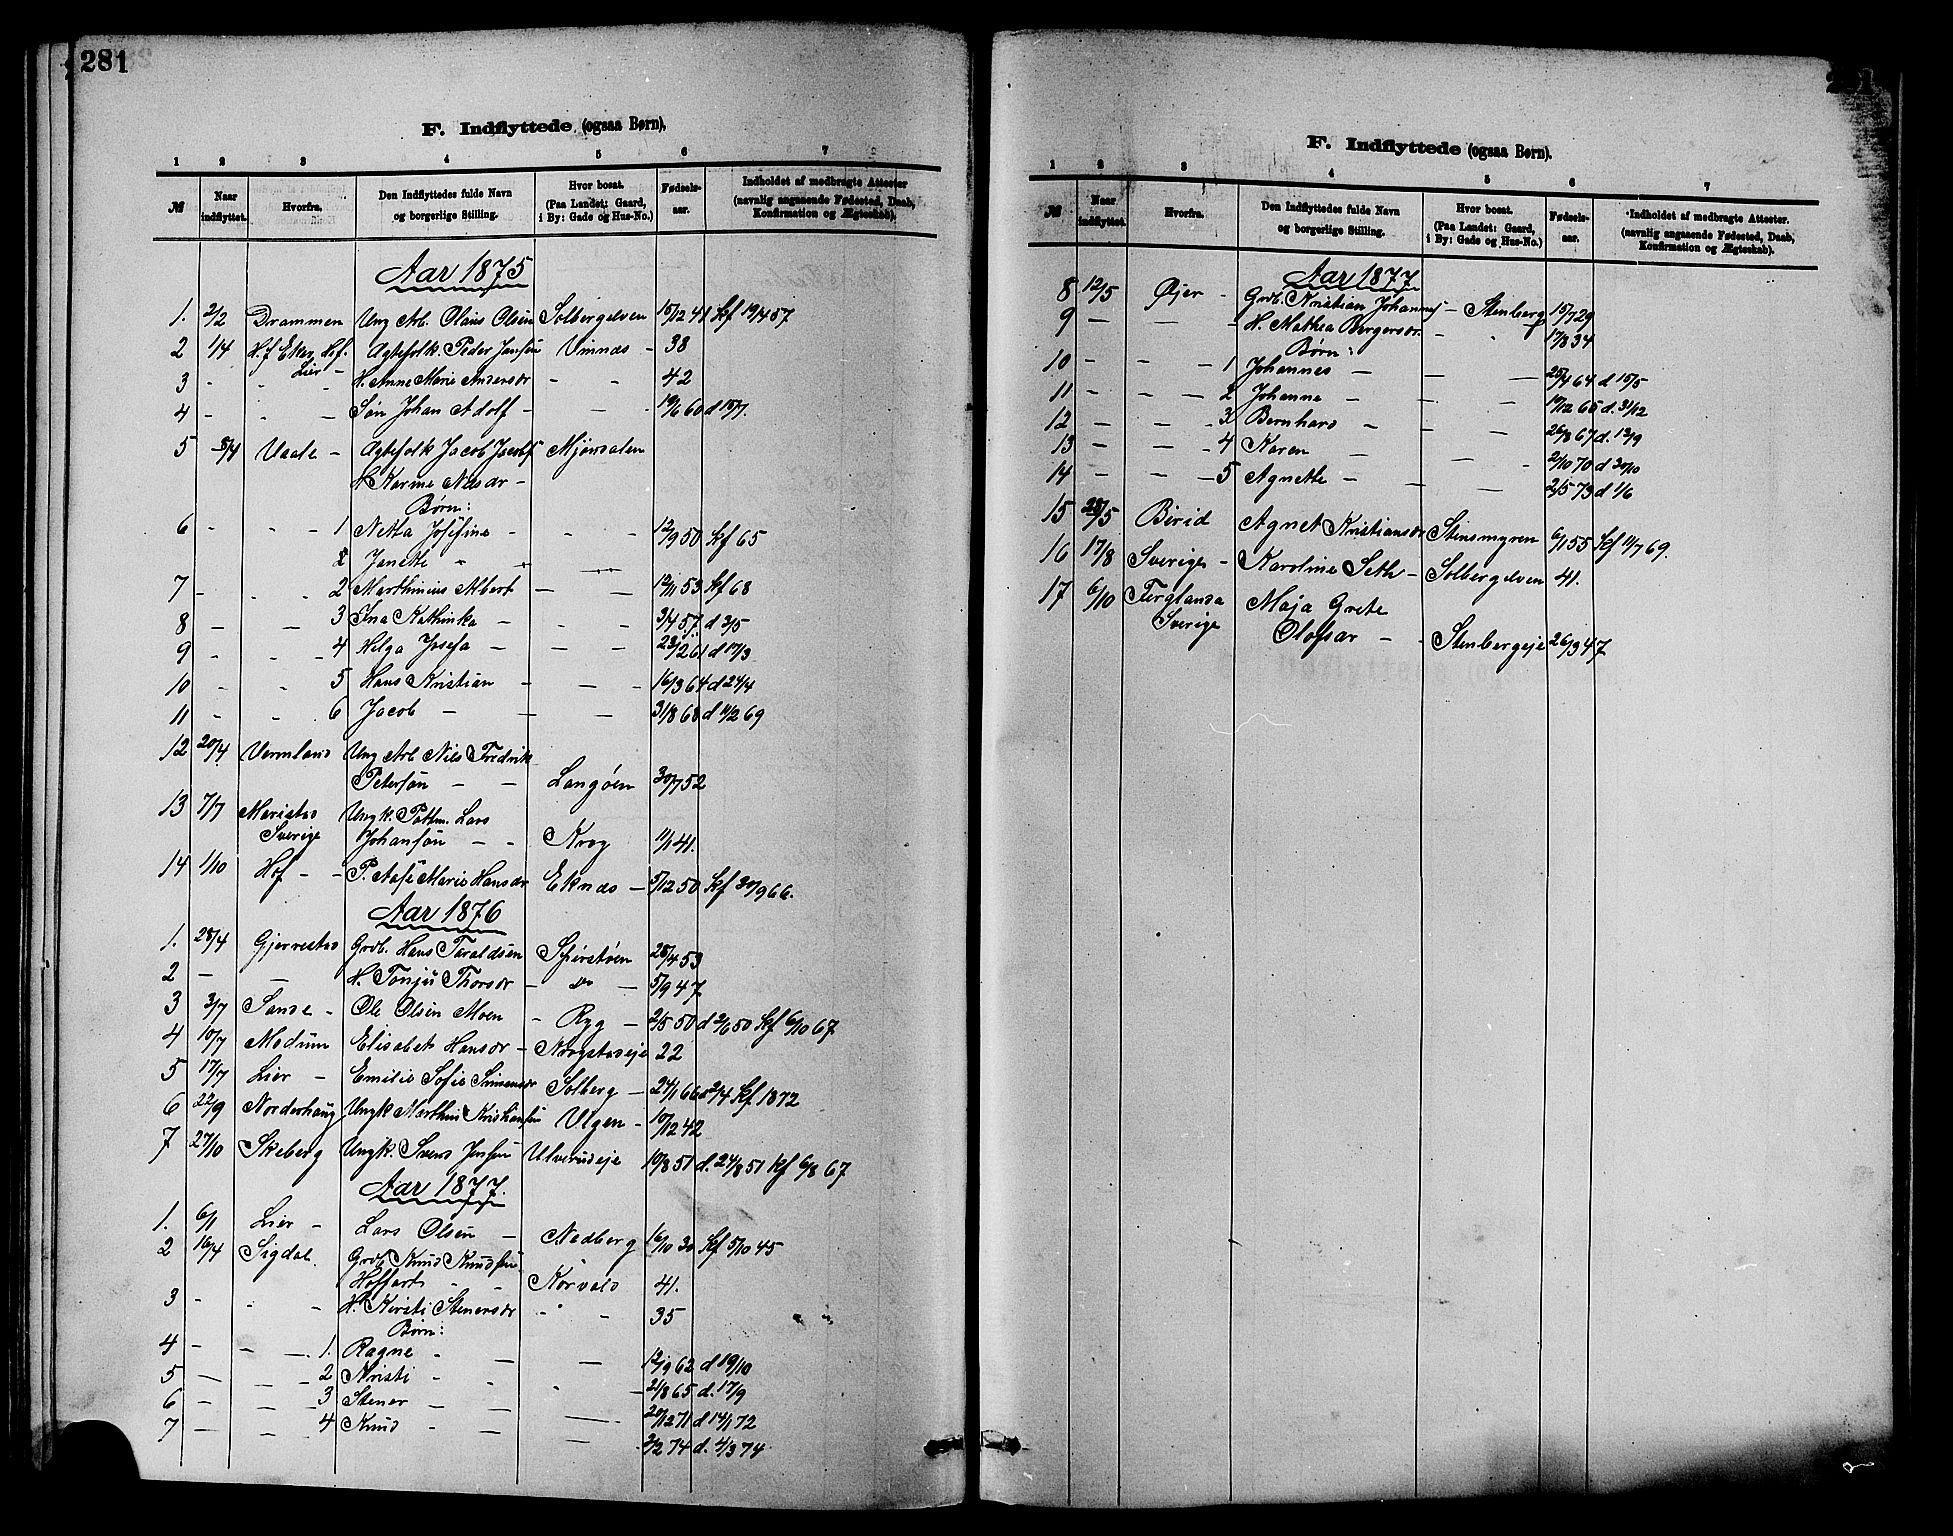 281
F. Indflyttede (ogsaa Børn).
1 2 3 4 5 6 7
№ Naar indflyttet. Hvorfra. Den Indflyttedes fulde Navn og borgerlige Stilling. Hvor bosat. (Paa Landet: Gaard, i By: Gade og Hus-No.) Fødsels-aar. Indholdet af medbragte Attester (navnlig angaaende Fødested, Daab, Konfirmation og Ægteskab).
Aar 1875
1. 2/2 Drammen Ung Arb. Olaus Olsen Solbergelven 15/12 41 kf 19/4 57
2 1/4 N.f Eker, Lier Ægtefolk. Peder Jensen Vinnæs - 38
3 - " - H. Anne Marie Andersdr - - 42
4 - " - Søn Johan Adolf - - 19/6 60 d 15/7.
5 5/4 Vaale - Ægtefolk Jacob Jacobs Mjøndalen
H Karine Nilsdr -
Børn:
6 - " - 1 Netta Josefine - - - 12/9 50 kf 65
2 Janette " -
7 - " - 2 Marthinius Albert - - 12/11 53 kf 68
8 - - 3 Ina Kathinka - - 3/4 57 d 3/5
9 - " - 4 Helga Josefa - - - 23/12 61 d 17/3
10 - " 5 Hans Kristian - - - 16/3 64 d 24/4
11 - " 6 Jacob - - - 31/8 68 d 11/2 69
12 20/4 Vermland Ung Arb Nils Fredrik
Petersøn - - Langøen 30/7 52
13 7/7 Maristad Ungk. Lars
Sverige Johansøn - - Krog 11/1 41.
14 1/10 Hof - - P. Aase Marie Hansdr Eknæs - 5/12 50 kf 30/9 66.
Aar 1876
1. 28/4 Gjerrestad Grdb. Hans Taraldsen 28/4 53
2 - - H. Tonje Thorsdr - do - 5/9 47
3 3/7 Sande - Ole Olsen Moen - Ryg - 2/5 50 d 2/6 50 kf 6/10 67
4 10/7 Modum Elisabet Hansdr - Krogstadeje 22
5 17/7 Lier - Emilie Sofie Simensdr Solberg - 24/1 kf 1872
6 22/9 Norderhaug Ungk Marthin Kristiansen Ulgen - 10/12 42
7 27/10 Skeberg Ungk. Svend Jensen Ulverudeje 10/8 51 d. 24/8 51 kf 6/8 67
Aar 1877.
1. 6/1 Lier - Lars Olsen - Nedberg 16/10 30 kf 5/10 45
2 16/4 Sigdal. Grdb Knud Knudsen
Hoffart - - Korvald 41.
3 - " - H. Kirsti Stenersdr - " - 35
Børn:
4 - - - 1. Ragne - - - 12/9 62 d 19/10
5 - - - 2 Kristi - - " - 21/8 65 d. 17/9
6 - - - 3 Stener - - 20/12 71 d 14/1 72
7 - - - 4 Knud - - - 2/2 74 d. 4/3 74
F. Indflyttede (ogsaa Børn).
1 2 3 4 5 6 7
№ Naar indflyttet. Hvorfra. Den Indflyttedes fulde Navn og borgerlige Stilling. Hvor bosat. (Paa Landet: Gaard, i By: Gade og Hus-No.) Fødsels-aar. Indholdet af medbragte Attester. (navnlig angaaende Fødested, Daab, Konfirmation og Ægteskab).
Aar 1877
8 12/5 Øjer - Grdb. Kristian Johannes - Stenberg 15/7 29
9 - - - H. Mathea Borgersdr. - " - 17/8 34
Børn:
10 - - - 1 Johannes - - - 25/4 64 d 15/5
11 - - - 2 Johanne - - - 19/12 65 d. 31/12
12 - - - 3 Bernhard - - - 26/8 67 d. 13/9
13 - - - 4 Karen - - - 2/10 70 d 30/10
14 - - - 5 Agnethe - - - 2/5 73 d 1/6
15 28/5 Birid Agnet Kristiansdr Stensmyren 6/1 55 kf 11/7 69.
16 17/8 Sverige - Karoline Seth - Solbergelven 41.
17 6/10 Ferglanda Maja Grete
Sverige Olofsar - - Stenbergeje 26/3 47